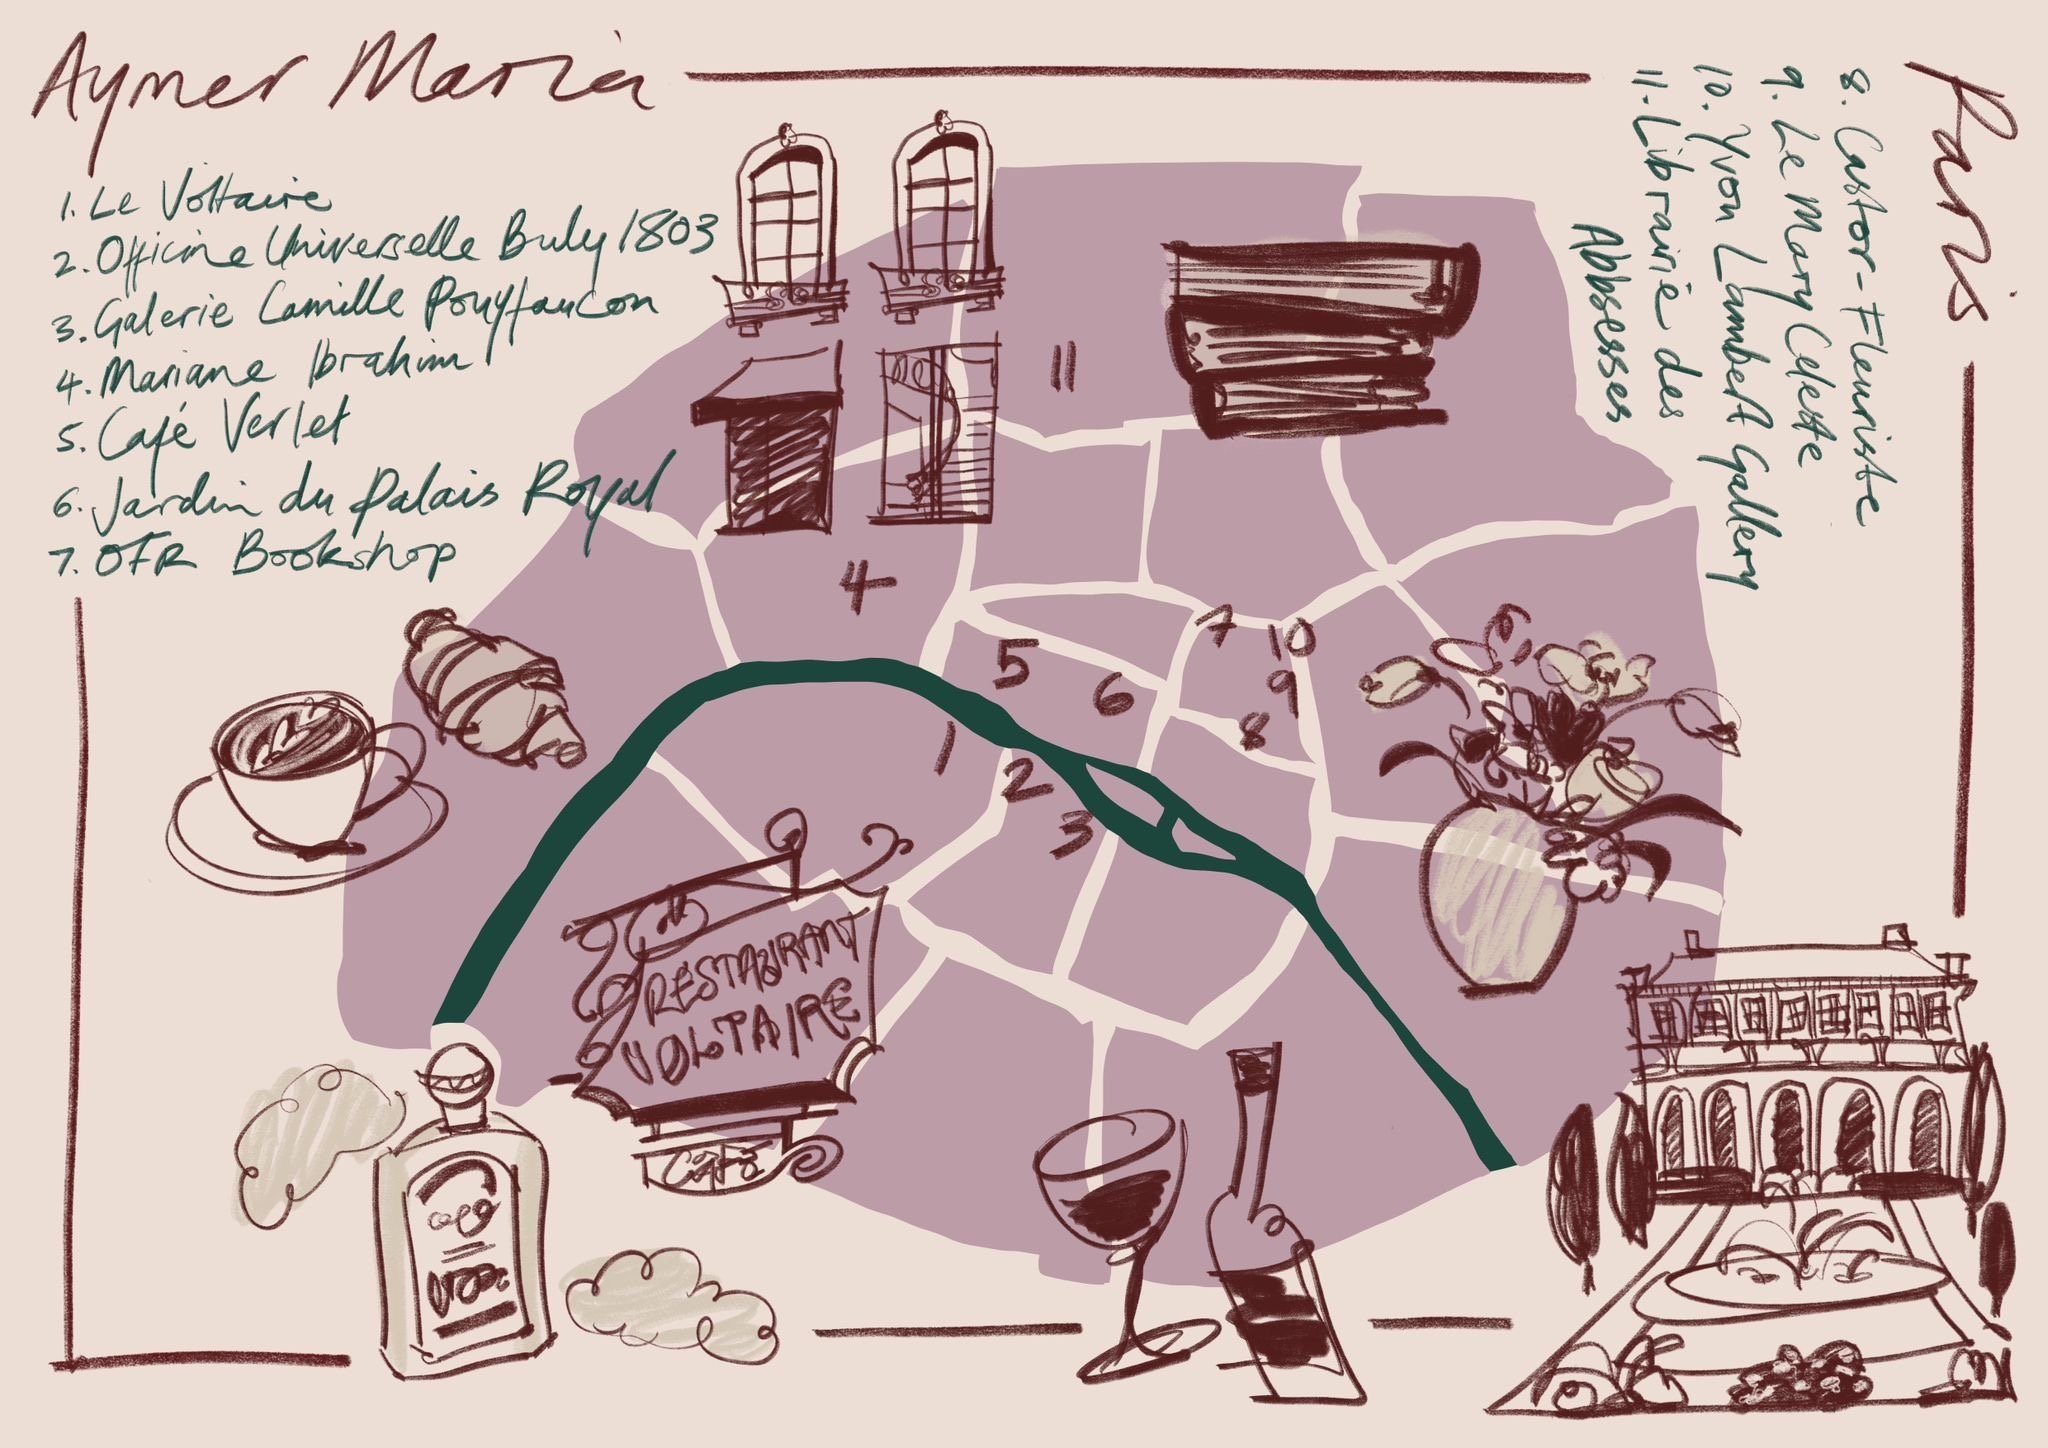 Aymer Maria
1. Le Voltaire
2. Officine Universelle Buly 1803
3. Galerie Camille Pouyfaucon
4. Mariane Ibrahim
5. Café Verlet
6. Jardin du Palais Royal
7. OFR Bookshop
Paris
8. Castor-Fleuriste
9. Le Mary Celeste
10. Yvon Lambert Gallery
11. Librairie des
Abbsesses
11
4
7
10
5
6
9
8
1
2
3
RESTAURANT
VOLTAIRE
CAFÉ